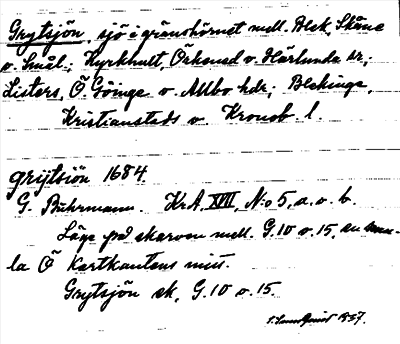 Grytsjön, sjö i gränshörnet mell. Blek, Skåne
o. Smål.; Kyrkhult, Örkened o. Härlunda sr;
Listers, Ö Göinge o. Allbo hdr; Blekinge,
Kristianstads o. Kronob. l.
grijtsiön 1684.
G. Buhrmann. KrA, XVIII, N:o 5, a. o. b.
Läge på skarven mell. G.10 o. 15,
la Ö Kartkantens mitt.
Grytsjön ek, G.10 o. 15.
1937.